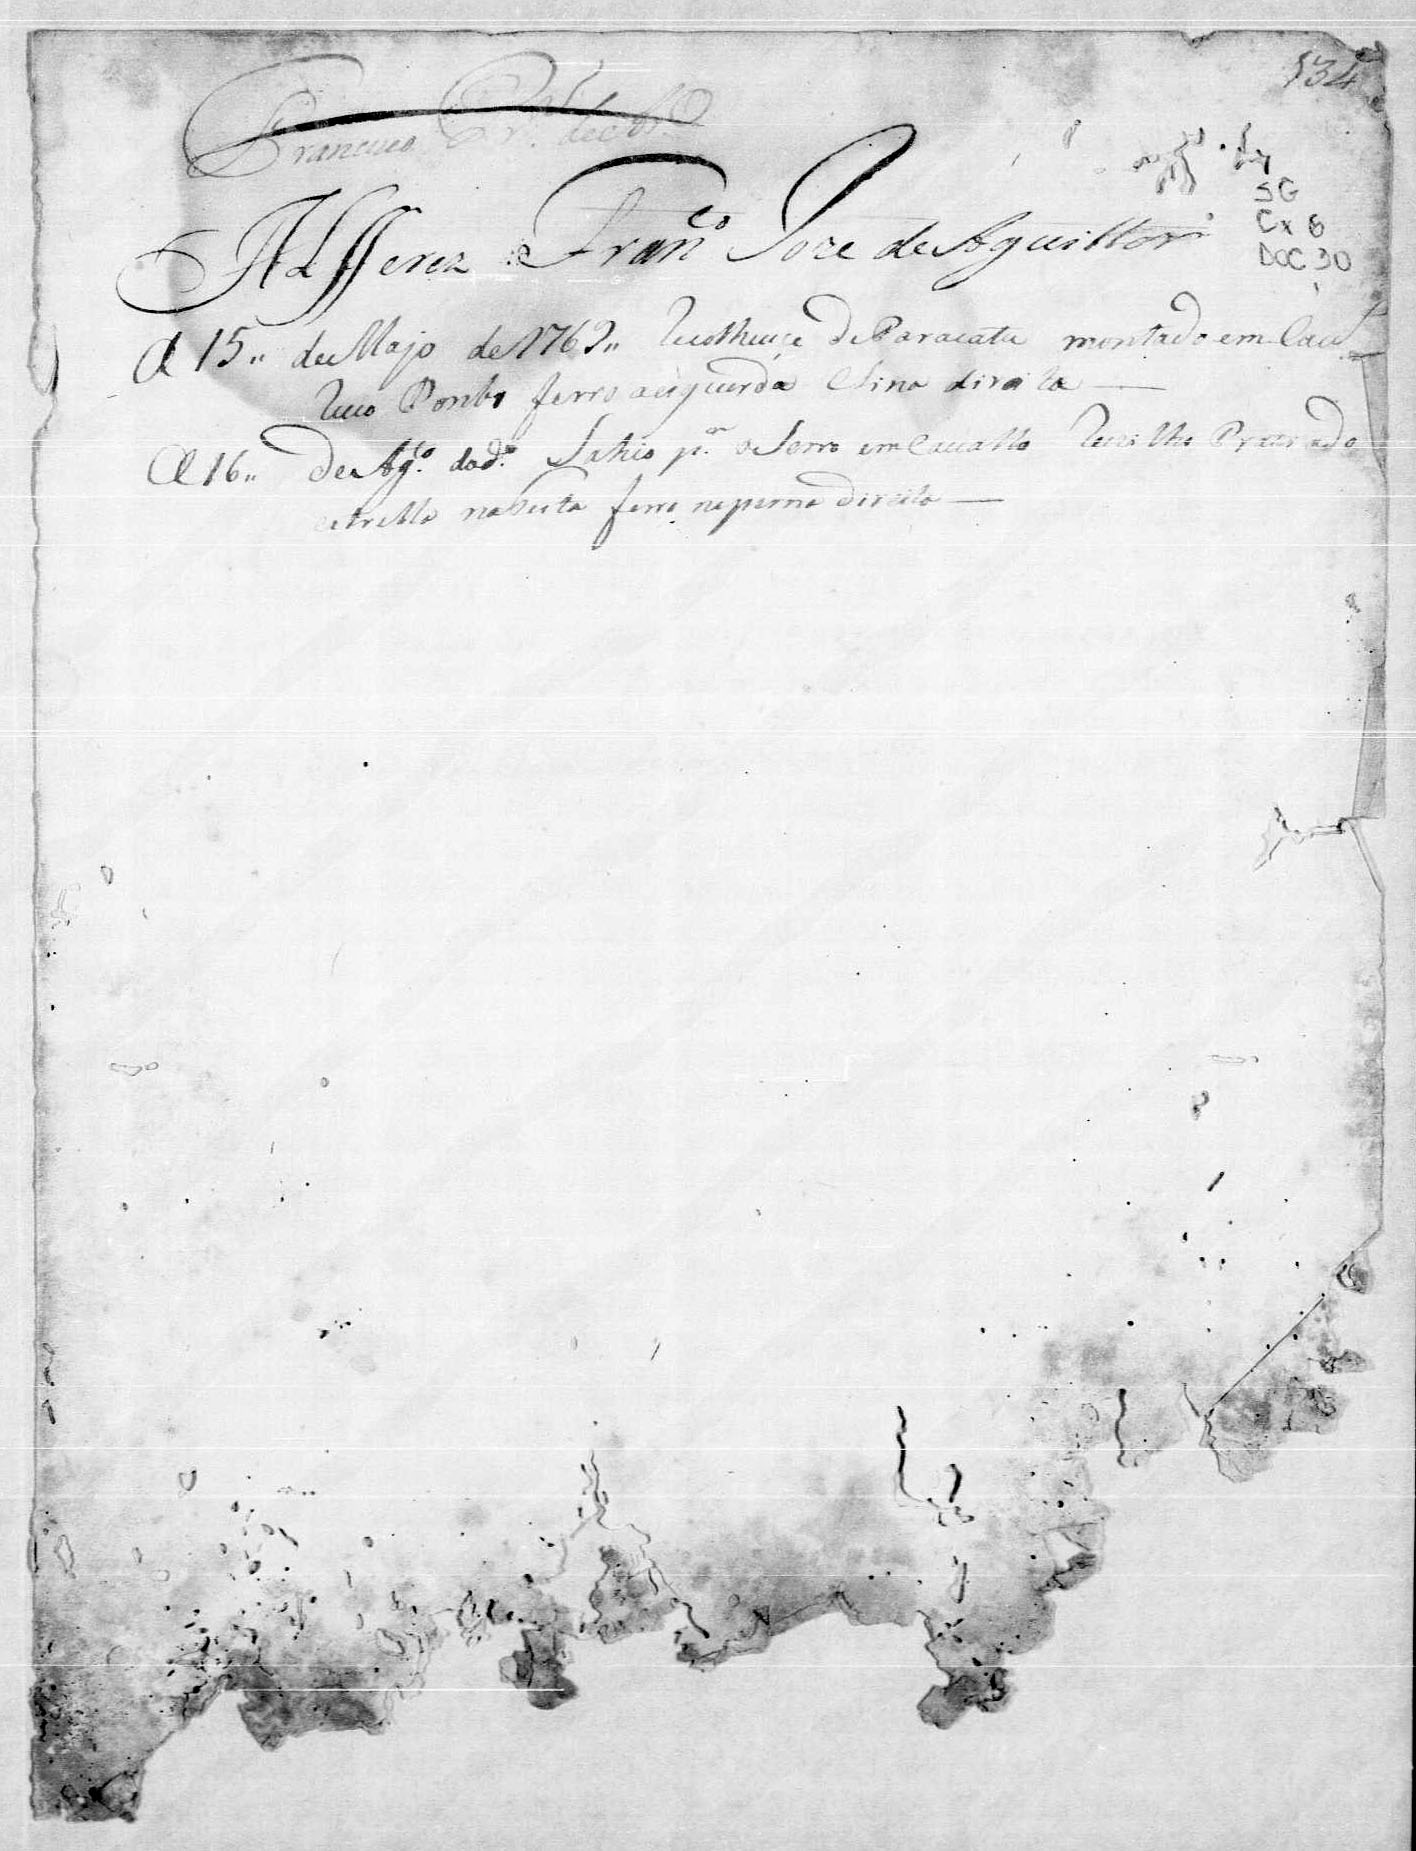 134
Francisco de
SG
Cx 6
DOC 30
Alfferez Fran.co Joze de Aguillar
A 15,, de Mayo de 1762,, Recolheuçe do Paracatu montado em Cav.
Ruço Pombo ferro aesquerda Clina direita —
A 16,, de Ag.to do d.o Sahio p.a o Serro em Cavallo
estrella natesta ferro naperna direita —